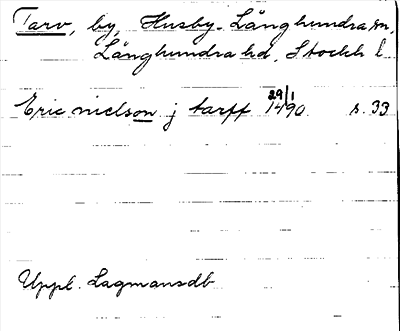 Tarv, by, Husby-Långhundra sn,
Långhundra hd, Stockh l.
Eric nielson j tarff 29/1 1490. s. 33
Uppl. Lagmansdb